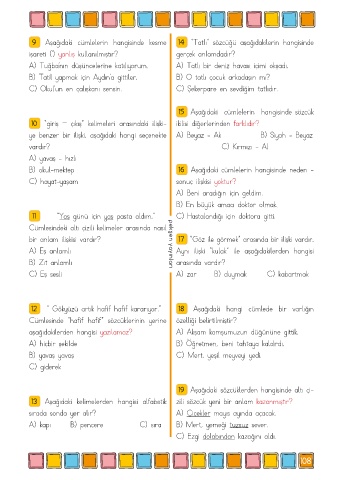 9 Aşağıdaki cümlelerin hangisinde kesme
işareti (') yanlış kullanılmıştır?
A) Tuğba'nın düşüncelerine katılıyorum.
B) Tatil yapmak için Aydın'a gittiler.
C) Okul'un en çalışkanı sensin.
10 "giriş – çıkış" kelimeleri arasındaki ilişki-
ye benzer bir ilişki, aşağıdaki hangi seçenekte
vardır?
A) yavaş - hızlı
B) okul-mektep
C) hayat-yaşam
11 "Yaş günü için yaş pasta aldım."
Cümlesindeki altı çizili kelimeler arasında nasıl
bir anlam ilişkisi vardır?
A) Eş anlamlı
B) Zıt anlamlı
C) Eş sesli
12 " Gökyüzü artık hafif hafif kararıyor."
Cümlesinde "hafif hafif" sözcüklerinin yerine
aşağıdakilerden hangisi yazılamaz?
A) hiçbir şekilde
B) yavaş yavaş
C) giderek
13 Aşağıdaki kelimelerden hangisi alfabetik
sırada sonda yer alır?
A) kapı B) pencere C) sıra
14 "Tatlı" sözcüğü aşağıdakilerin hangisinde
gerçek anlamdadır?
A) Tatlı bir deniz havası içimi okşadı.
B) O tatlı çocuk arkadaşın mı?
C) Şekerpare en sevdiğim tatlıdır.
15 Aşağıdaki cümlelerin hangisinde sözcük
ikilisi diğerlerinden farklıdır?
A) Beyaz - Ak B) Siyah - Beyaz
C) Kırmızı - Al
16 Aşağıdaki cümlelerin hangisinde neden -
sonuç ilişkisi yoktur?
A) Beni aradığın için geldim.
B) En büyük amacı doktor olmak.
C) Hastalandığı için doktora gitti.
17 "Göz ile görmek" arasında bir ilişki vardır.
Aynı ilişki "kulak" ile aşağıdakilerden hangisi
arasında vardır?
A) zar B) duymak C) kabartmak
18 Aşağıdaki hangi cümlede bir varlığın
özelliği belirtilmiştir?
A) Akşam komşumuzun düğününe gittik.
B) Öğretmen, beni tahtaya kaldırdı.
C) Mert, yeşil meyveyi yedi.
19 Aşağıdaki sözcüklerden hangisinde altı çi-
zili sözcük yeni bir anlam kazanmıştır?
A) Çiçekler mayıs ayında açacak.
B) Mert, yemeği tuzsuz sever.
C) Ezgi dolabından kazağını aldı.
pelikan yayınları
108